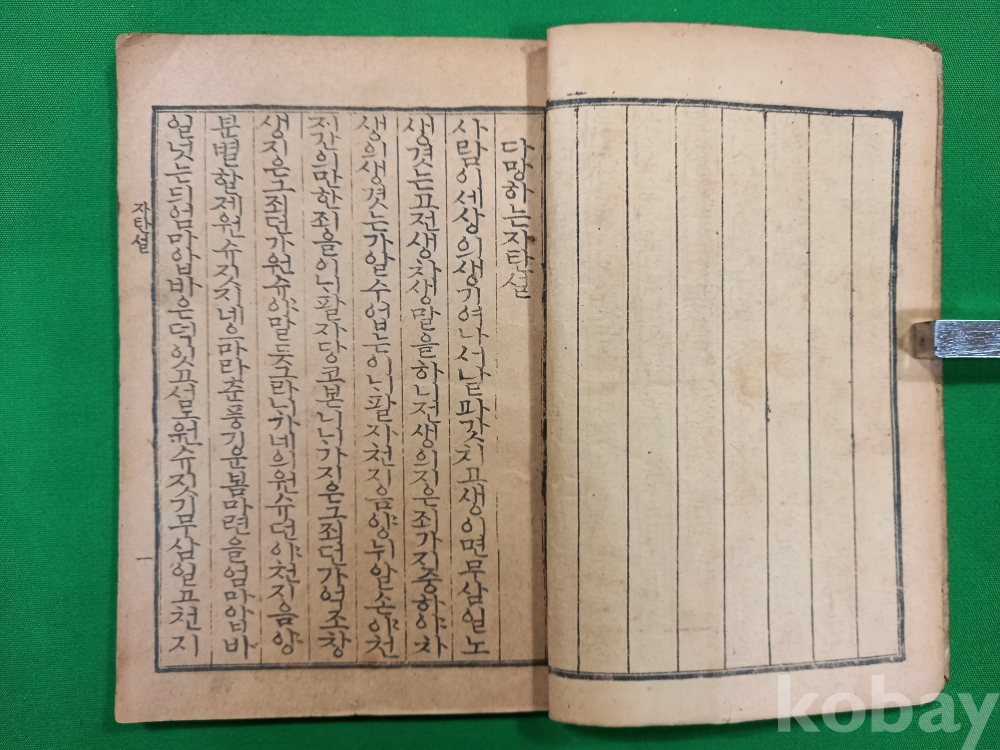 다망하는자탄셜
사람이세상의생기여나서낱파갓치고생이면무삼일노
생겻는고전생차생말을하니전생의지은죄가지중하야차
생의생겻는가알수업는이니팔자천지음양뉘알손야천
지간의만한죄을이니팔자당코본니니가지은그죄던가여조창
생지은그죄던가원슈야말듯그라니가네의원슈던야천지음양
분별할제원슈짓지네으마라춘풍기운봄마련을엄마압바
일넛는듸엄마압바은덕잇고셔로원슈짓기무삼일고천지
자탄셜
一
kobay